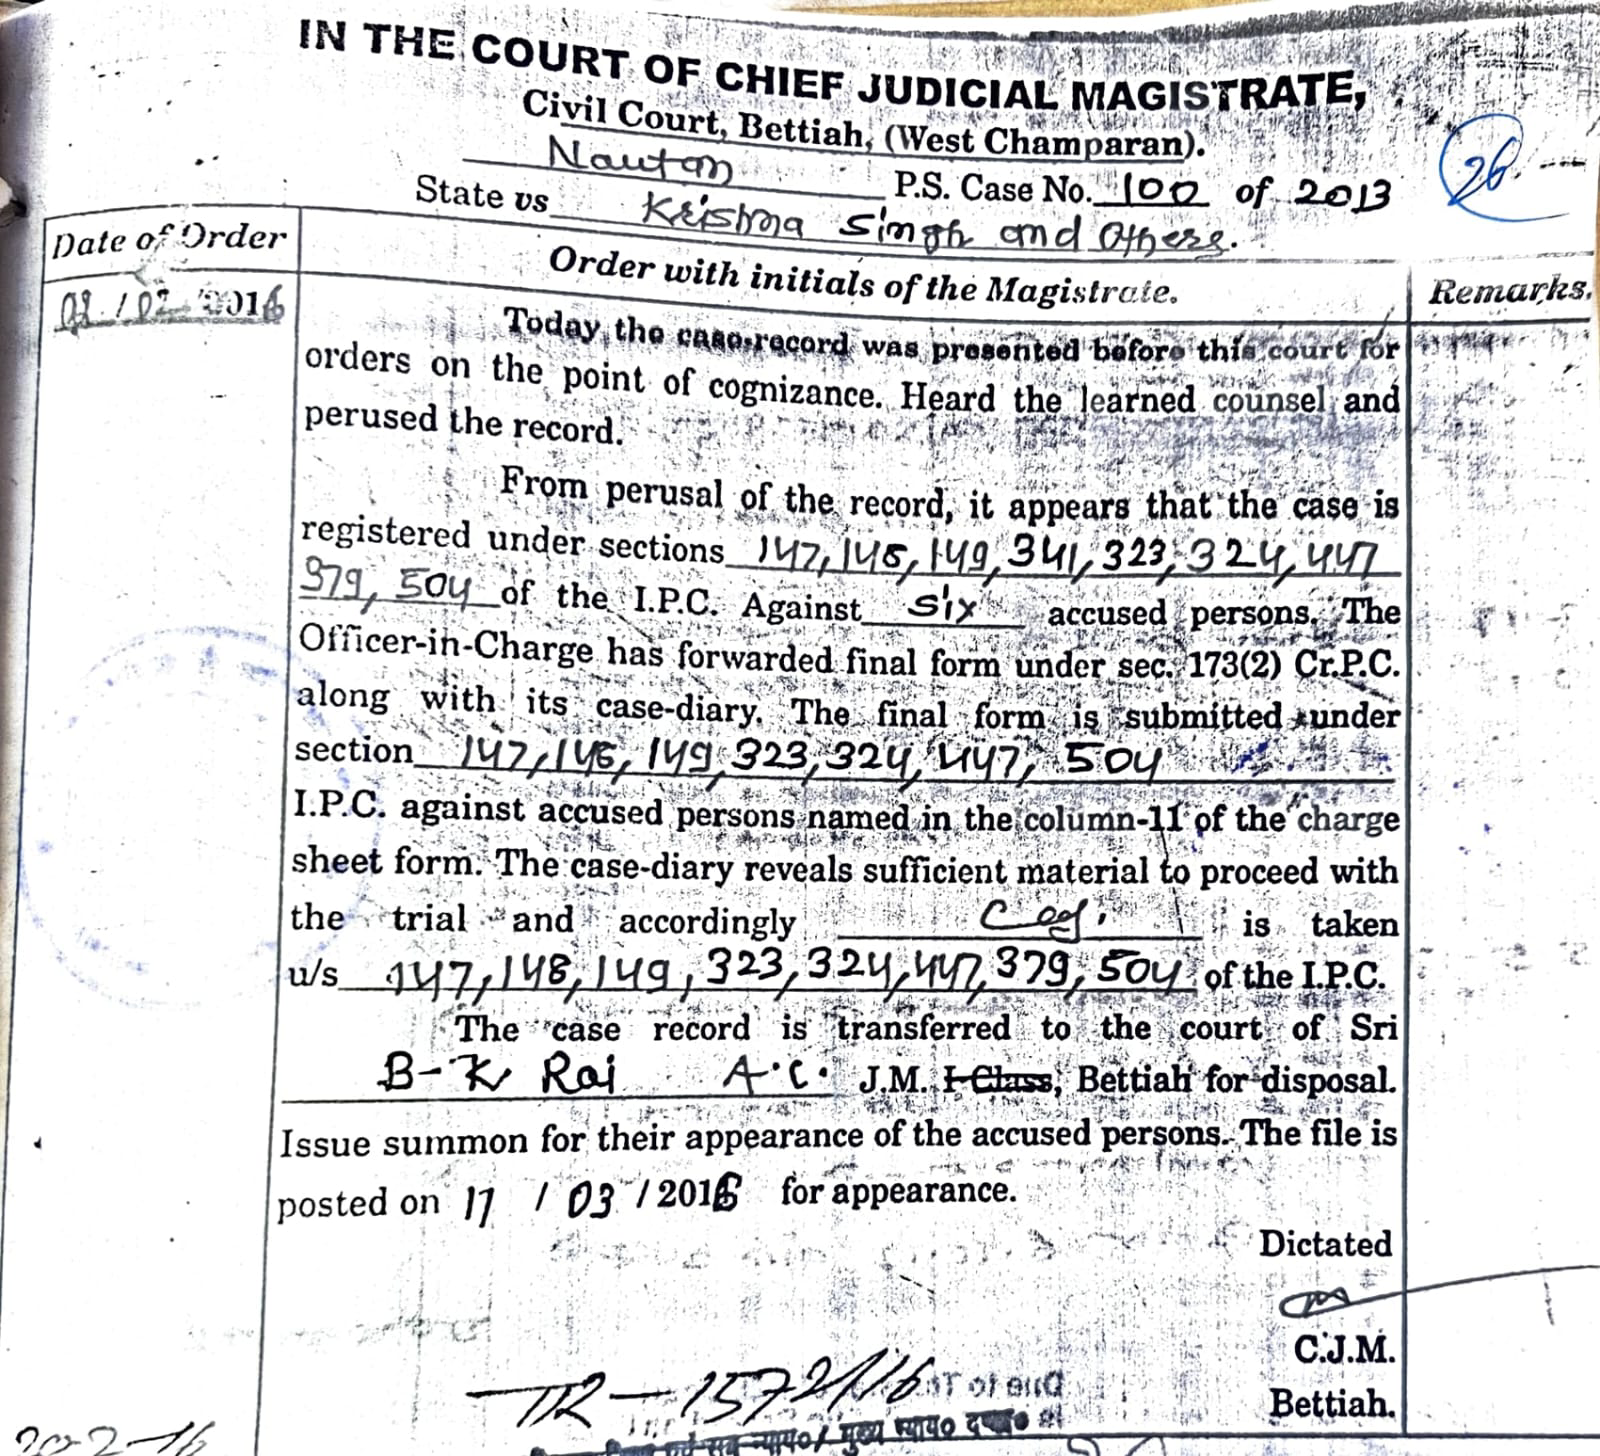 IN THE COURT OF CHIEF JUDICIAL MAGISTRATE,
Civil Court, Bettiah, (West Champaran).
Nautan P.S. Case No. 100 of 2013
26
State vs Krishna Singh and Others.
Date of Order
Order with initials of the Magistrate.
Remarks.
02 2016
Today the case-record was presented before this court for
orders on the point of cognizance. Heard the learned counsel and
perused the record.
From perusal of the record, it appears that the case is
registered under sections 147, 148, 149, 341, 323, 324, 447
379, 504 of the I.P.C. Against six accused persons. The
Officer-in-Charge has forwarded final form under sec. 173(2) Cr.P.C.
along with its case-diary. The final form is submitted under
section 147, 148, 149, 323, 324, 447, 504
I.P.C. against accused persons named in the column-11 of the charge
sheet form. The case-diary reveals sufficient material to proceed with
the trial and accordingly Cog. is taken
u/s 147, 148, 149, 323, 324, 447, 379, 504 of the I.P.C.
The case record is transferred to the court of Sri
B-K Rai A.C. J.M. I-Class, Bettiah for disposal.
Issue summon for their appearance of the accused persons. The file is
posted on 17 / 03 / 2016 for appearance.
Dictated
C.J.M.
Bettiah.
TR-1572/16